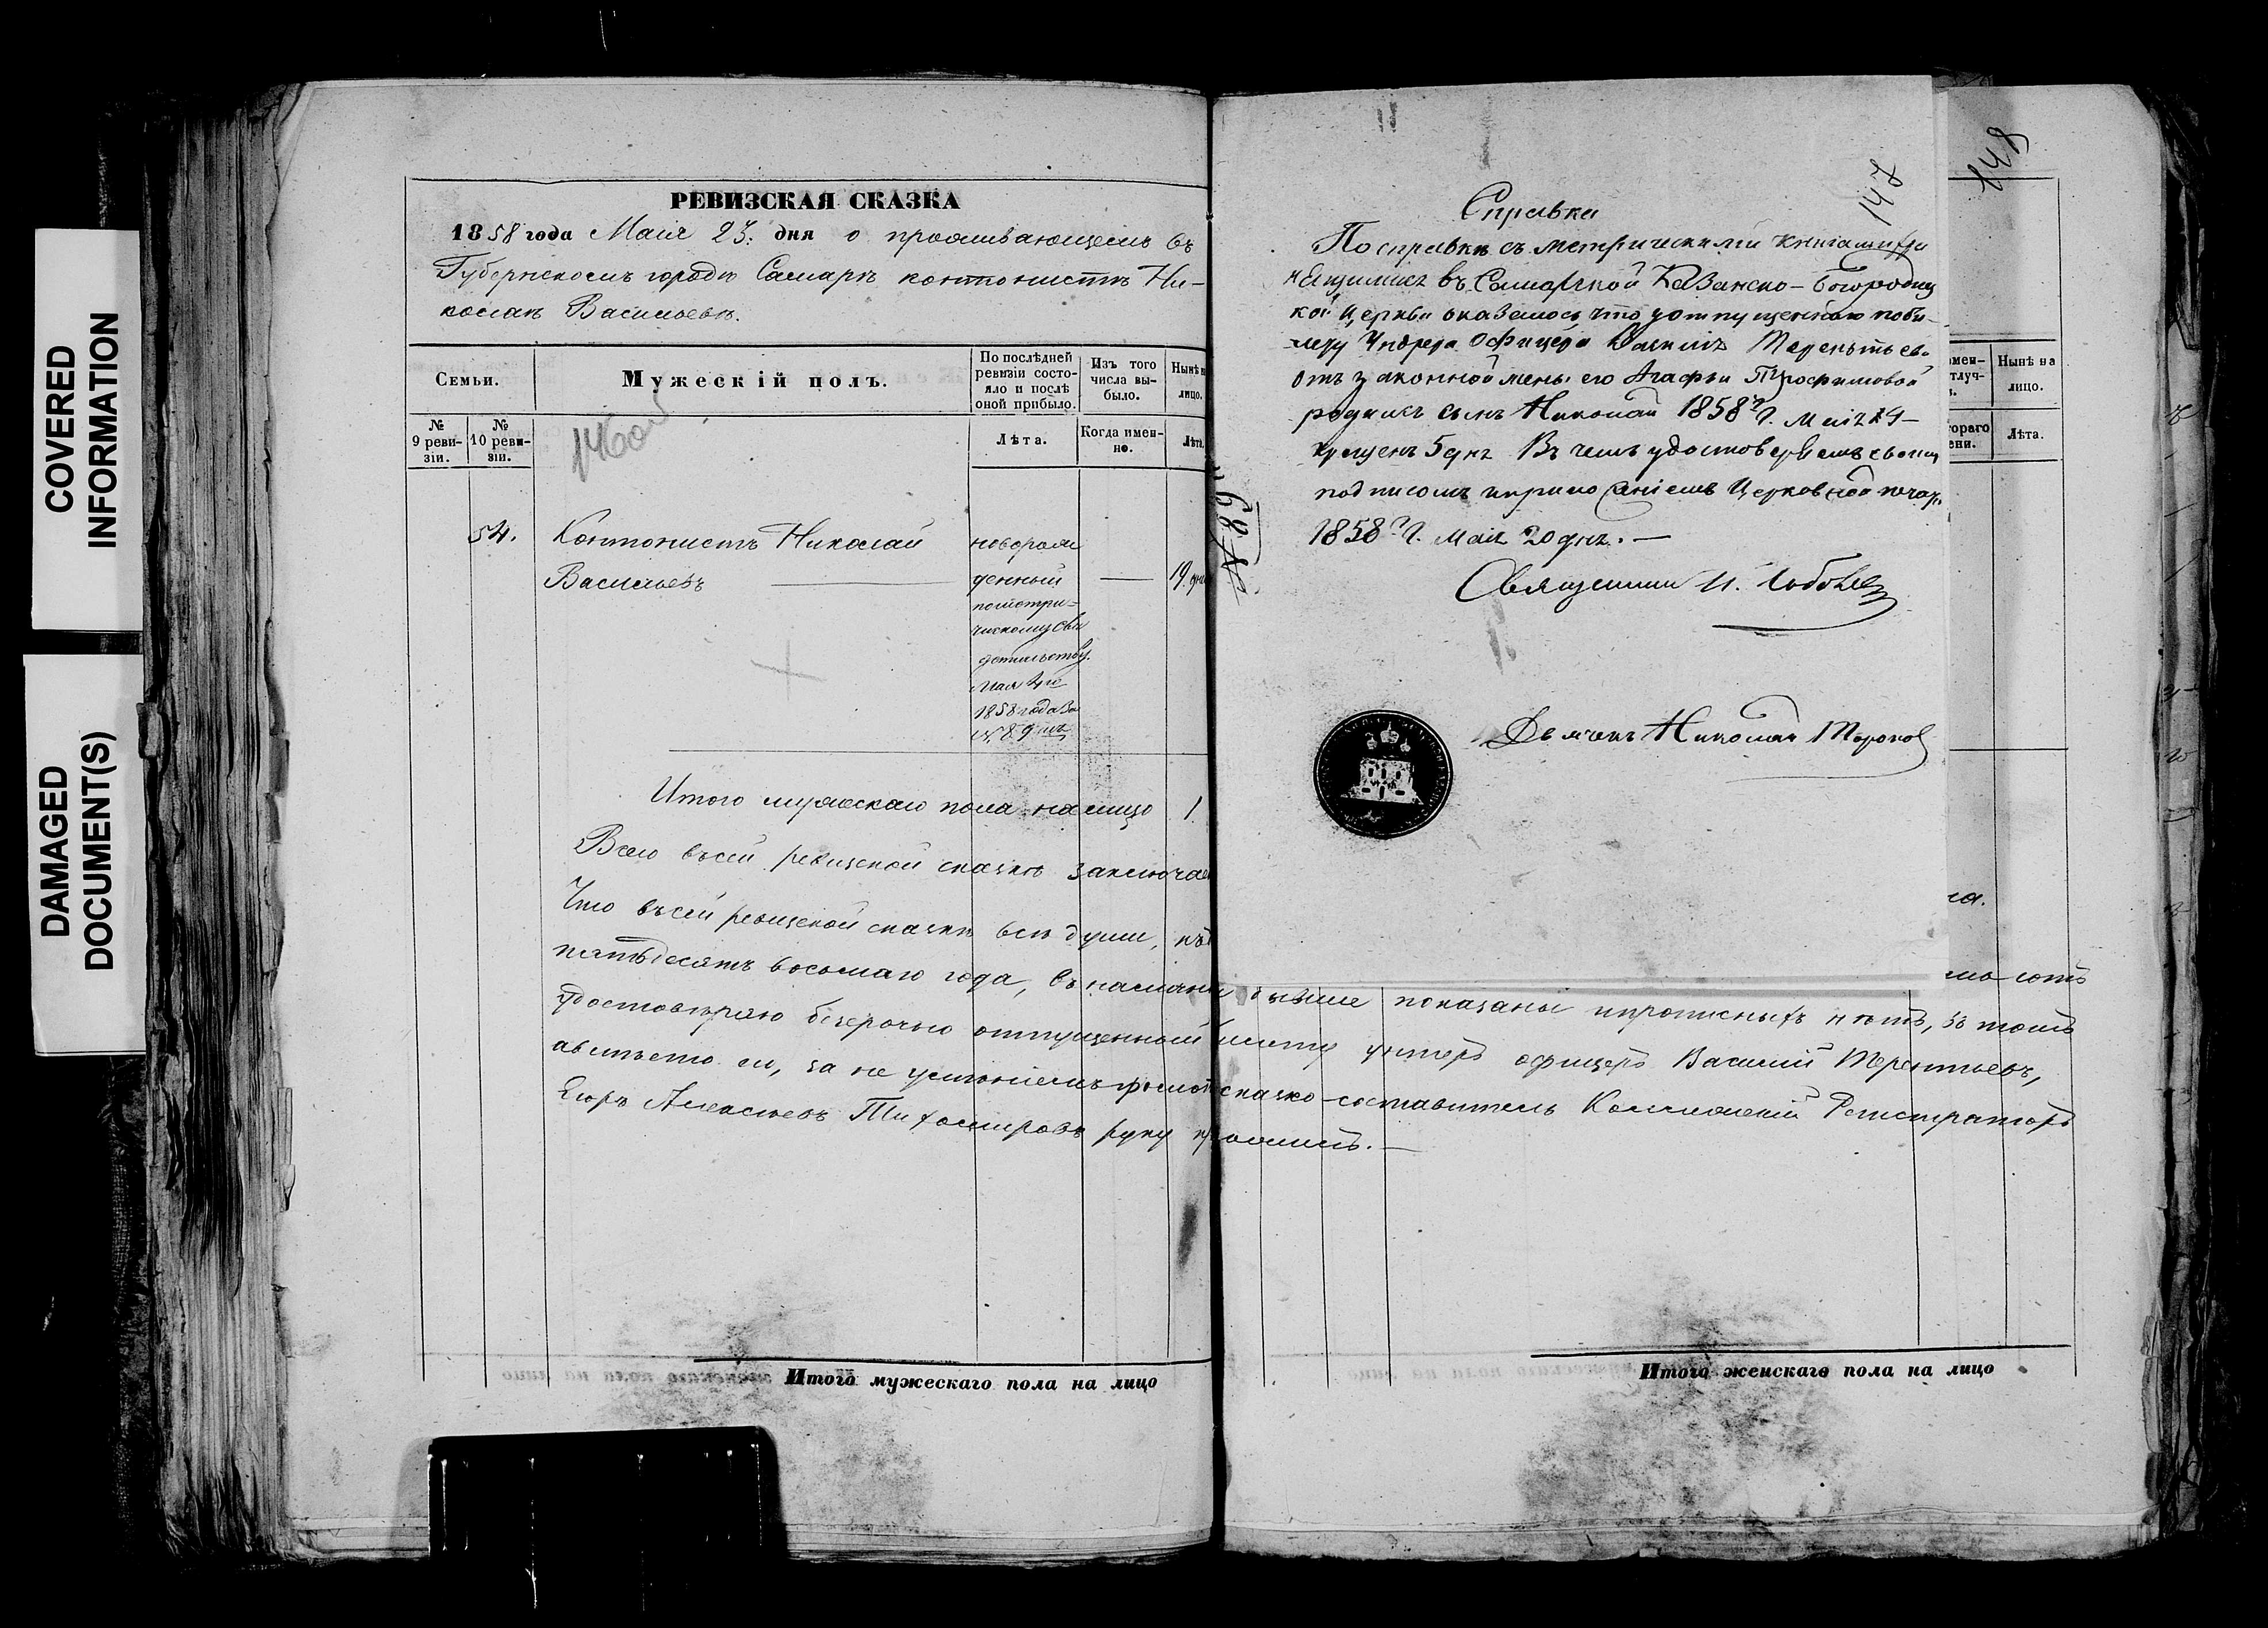 COVERED
INFORMATION
DAMAGED
DOCUMENT(S)
РЕВИЗСКАЯ СКАЗКА
1858 года Маія 23. дня о проживающемъ въ
Губернскомъ городѣ Самарѣ контонистѣ Ни-
колаѣ Васильевѣ.
Семьи.
Мужескій полъ.
По послѣдней
ревизіи состо-
яло и послѣ
оной прибыло.
Изъ того
числа вы-
было.
Нынѣ н
лицо.
№
9 реви-
зіи.
№
10 реви-
зіи.
Лѣта.
Когда имен-
но.
Лѣта.
146об
54.
Контонистъ Николай
Васильевъ
новорож
денный
пометри-
ческому сви
детельству
Мая 4го
1858 года за
№ 89мъ
19 дн
Итого мужескаго пола налицо 1.
Всего въсей ревизской сказкѣ заключае
Что въсей ревизской сказкѣ всѣ души, къ
пятьдесятъ восьмаго года, въ налични бывше показаны ипрописныхъ нѣтъ, въ томъ
удостовѣряю безсрочно отпущенный унтеръ офицеръ Василій Терентьевъ,
авместо ея, за не умѣніемъ грамотѣ сказко-составитель Коллежскій Регистраторъ
Егоръ Алексѣевъ Тихомировъ руку приложилъ.
Итого мужескаго пола на лицо
№ 89
147
Справка
По справкѣ съ метрическими книгами хра
нящимися въ Самарской Казанско-Богородиц
кой Церкви оказалось, что у отпущеннаго поби-
лету Ундера Офицера Василія Терентьева
отъ законной жены его Агафьи Трофимовой
родился сынъ Николай 1858 г. Маія 4-
крещенъ 5 дня Въ чемъ удостовѣряемъ своимъ
подписомъ и приложеніемъ Церковной печати
1858 г. Маія 20 дня.
Священникъ И.
Дьячекъ Николай
148
имен-
тлуч-
Нынѣ на
лицо.
тораго
ени.
Лѣта.
ла.
мь сотъ
Итого женскаго пола на лицо